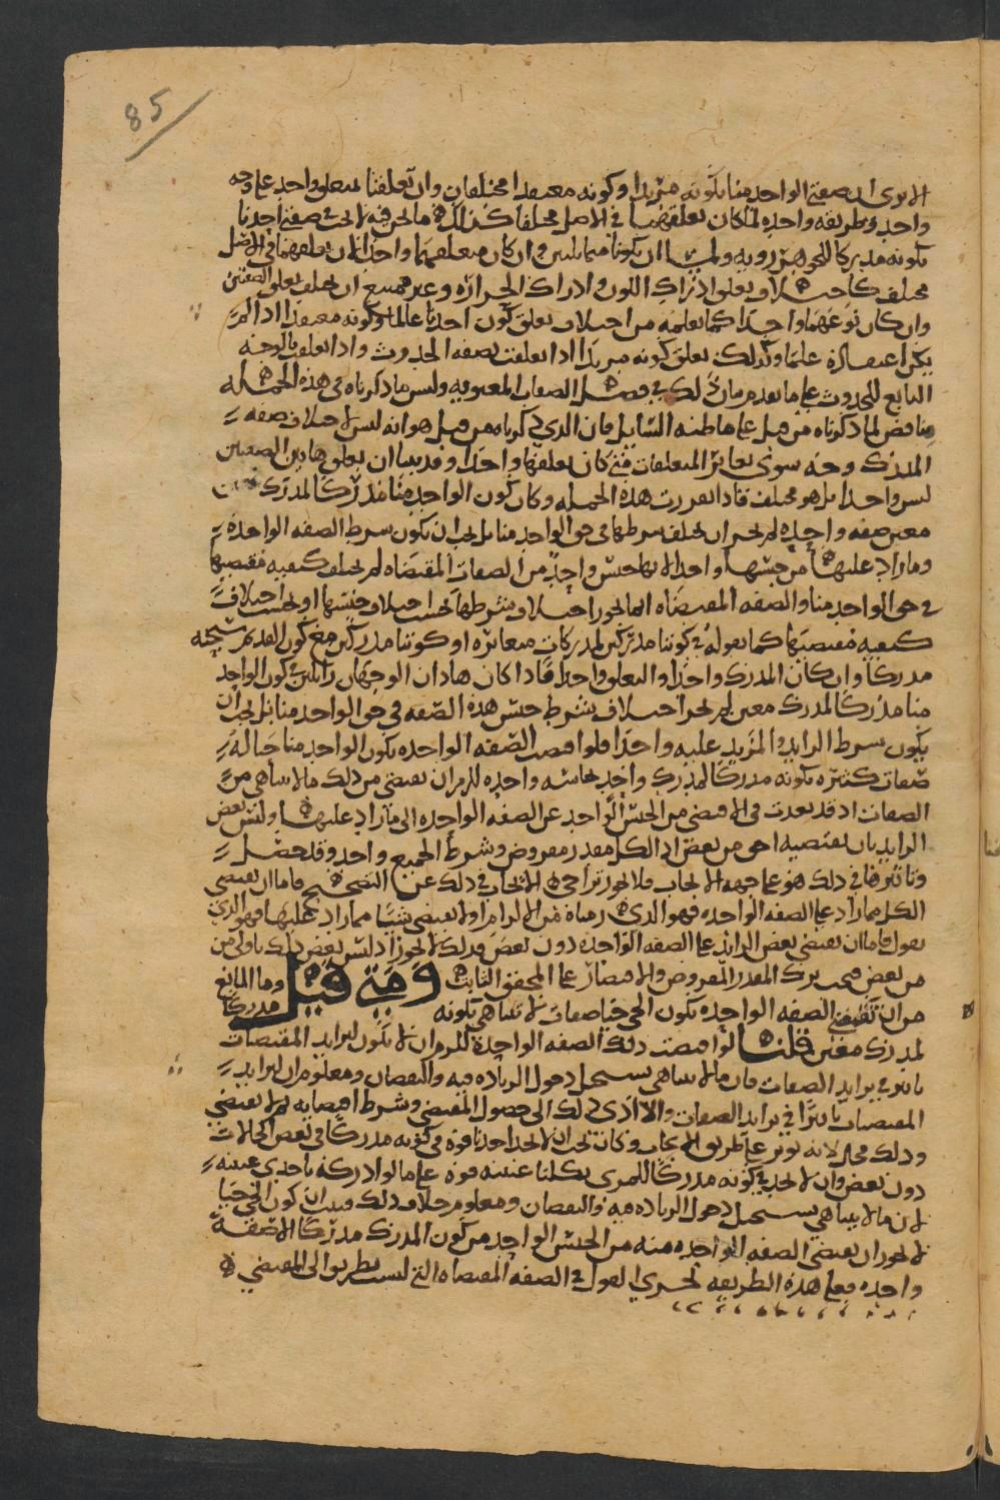 85
الا ترى ان صفتي الواحد منا بكونه مريدا وكونه معتقدا مختلفان وان تعلقتا بمتعلق واحد على وجه
واحد وطريقة واحدة لما كان تعلقهما في الاصل مختلفا كذلك ما نحن فيه لانه صفة احدنا
بكونه مدركا للجوهر رؤية ولمسا ان يكونا متماثلين وان كان متعلقهما واحدا لان تعلقهما في الاصل
مختلف كاختلاف تعلق ادراك اللون وادراك الحرارة وغير ممتنع ان يختلف تعلق الصفتين
وان كان نوعهما واحدا كما تعلمه من اختلاف تعلق كون احدنا عالما وكونه معتقدا اذا لم
يكن اعتقاده علما وكذلك تعلق كونه مريدا اذا تعلقت بصفة الحدوث واذا تعلق بالوجه
التابع للحدوث على ما تقدم بيان ذلك في فصل الصفات المعنوية وليس ما ذكرناه في هذه الجملة
مناقض لما ذكرناه من قبل على ما ظنه السائل فان الذي ذكرناه من قبل هو انه ليس لاختلاف صفة
المدرك وجه سوى تغاير المتعلقات فمتى كان تعلقها واحدا وقد بينا ان تعلق هاتين الصفتين
ليس واحدا بل هو مختلف فاذا تقررت هذه الجملة وكان كون الواحد منا مدركا لمدرك
معين صفة واحدة لم يجز ان يختلف شرطها في حق الواحد منا بل يجب ان يكون شرط الصفة الواحدة
وما زاد عليها من جنسها واحدا لانها جنس واحد من الصفات المقتضاة لم يختلف كيفية مقتضيها
في حق الواحد منا والصفة المقتضاة انما يجوز اختلاف شرطها بحسب اختلاف جنسها او بحسب اختلاف
كيفية مقتضيها كما نقوله في كوننا مدركين لمدركات متغايرة او كوننا مدركين مع كون القديم سبحانه
مدركا وان كان المدرك واحدا والتعلق واحدا فاذا كان هاذان الوجهان زائلين في كون الواحد
منا مدركا لمدرك معين لم يجز اختلاف شرط جنس هذه الصفة في حق الواحد منا بل يجب ان
يكون شرط الزايد والمزيد عليه واحدا فلو اقتضت الصفة الواحدة بكون الواحد منا حيا له
صفات كثيرة بكونه مدركا لمدرك واحد بحاسة واحدة للزم ان تقتضي من ذلك ما لا يتناهى من
الصفات اذ قد تعدت في الاقتضى من الجنس الواحد عن الصفة الواحدة الى ما زاد عليها وليس بعض
الزايد بان تقتضيه احق من بعض اذ الكل مقدر مفروض وشرط الجميع واحد وقد حصل
وتاثيرها في ذلك هو على جهة الايجاب فلا يجوز تراخي الايجاب في ذلك عن التصحيح فاما ان تقتضي
الكل مما زاد على الصفة الواحدة فهو الذي رمناه من الالزام او لا تقتضي شيئا مما زاد عليها فهو الذي
نقول فاما ان تقتضي بعض الزايد على الصفة الواحدة دون بعض فذلك لا يجوز اذ ليس بعض ذلك باولى من
من بعض فيجب ترك المقدر المفروض والاقتصار على المحقق الثابت ومتى قيل وما المانع
من ان تقتضي الصفة الواحدة بكون الحي حيا صفات لا تتناهى بكونه مدركا
لمدرك معين قلنا لو اقتضت ذلك الصفة الواحدة للزم ان لا يكون لتزايد المقتضيات
تاثير في تزايد الصفات فان ما لا يتناهى يستحيل دخول الزيادة فيه والنقصان ومعلوم ان لتزايد
المقتضيات تاثيرا في تزايد الصفات والا ادى ذلك الى حصول المقتضي وشرط اقتضايه ثم لا يقتضي
وذلك محال لانه يوثر على طريق الايجاب وكان يجب ان لا يجد احدنا قوة في كونه مدركا في بعض الحالات
دون بعض وان لا يجد في كونه مدركا للمرئي بكلتا عينيه قوة على ما لو ادركه باحدى عينيه
لان ما لا يتناهى يستحيل دخول الزيادة فيه والنقصان ومعلوم خلاف ذلك فثبت ان كون الحي حيا
لا يجوز ان تقتضي الصفة الواحدة منه من الجنس الواحد من كون المدرك مدركا الا صفة
واحدة فعلى هذه الطريقة يجري القول في الصفة المقتضاة التي ليست بطريق الى المقتضي